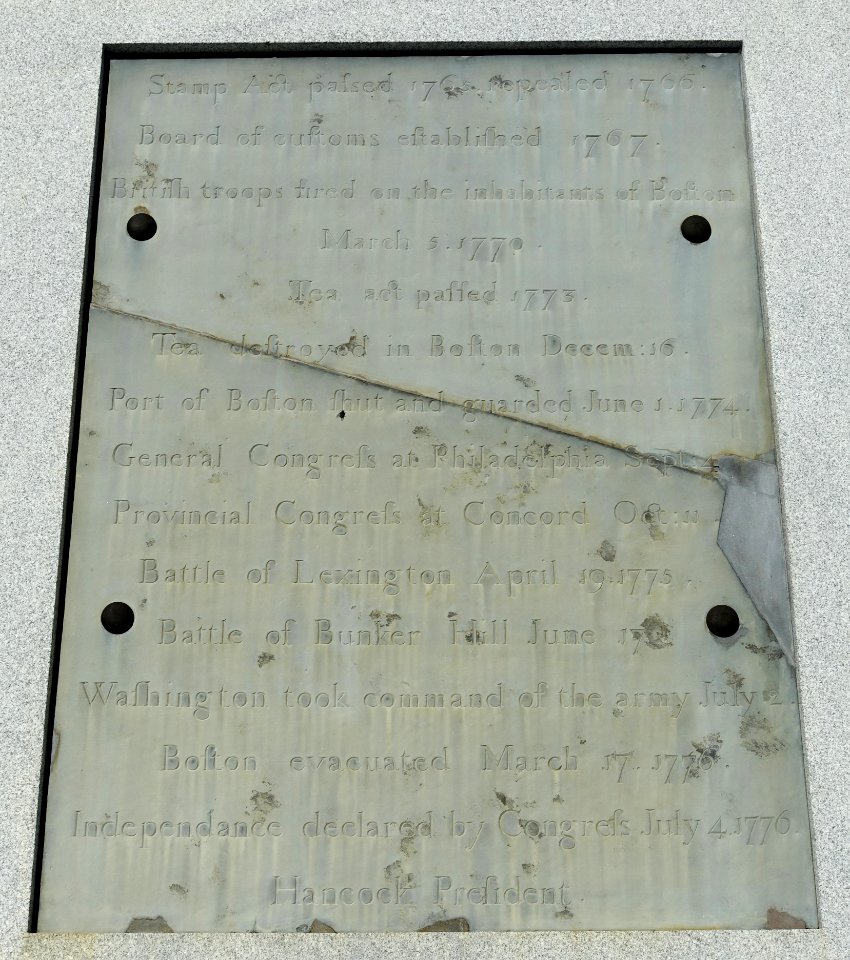 Stamp Act paſsed 1765. repealed 1766.
Board of cuſtoms eſtabliſhed 1767.
Britiſh troops fired on the inhabitants of Boſton
March 5. 1770.
Tea act paſſed 1773.
Tea deſtroyed in Boſton Decem: 16.
Port of Boſton ſhut and guarded June 1. 1774.
General Congreſs at Philadelphia Sept: 4
Provincial Congreſs at Concord Oct: 11.
Battle of Lexington April 19. 1775.
Battle of Bunker Hill June 17.
Waſhington took command of the army July 2.
Boſton evacuated March 17. 1776.
Independance declared by Congreſs July 4. 1776.
Hancock Preſident.